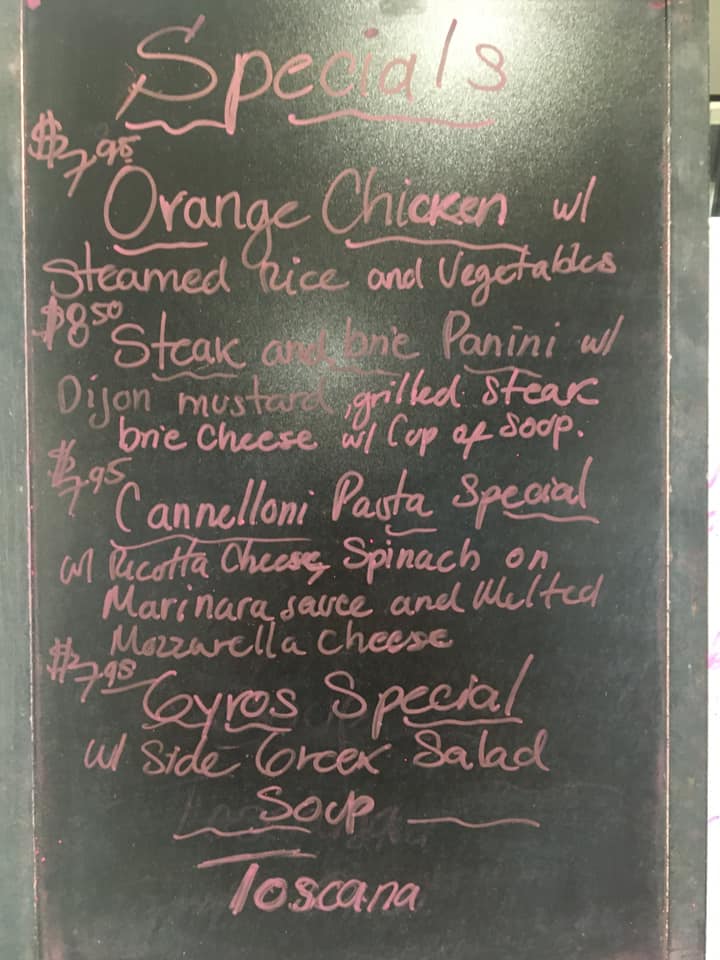 Specials
$7.95
Orange Chicken w/
Steamed Rice and Vegetables
$8.50
Steak and brie Panini w/
Dijon mustard, grilled steak
brie cheese w/ Cup of Soup.
$7.95
Cannelloni Pasta Special
w/ Ricotta Cheese, Spinach on
Marinara sauce and Melted
Mozzarella cheese
$7.95
Gyros Special
w/ Side Greek Salad
Soup
Toscana